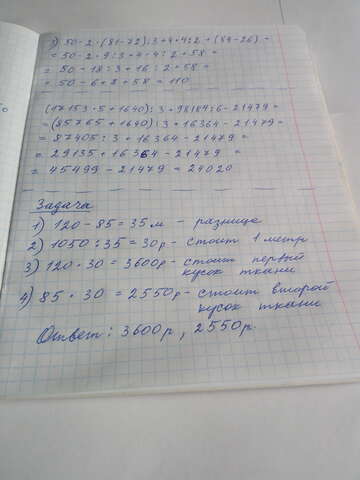 1) 50-2·(81-72):3+4·4:2+(84-26)=
= 50-2·9:3+4·4:2+58=
= 50-18:3+16:2+58=
= 50-6+8+58=110
(17153·5+1640):3+98184:6-21479=
= (85765+1640):3+16364-21479=
= 87405:3+16364-21479=
= 29135+16364-21479=
= 45499-21479=24020
Задача
1) 120-85=35м - разница
2) 1050:35=30р- стоит 1 метр
3) 120·30=3600р- стоит первый
кусок ткани
4) 85·30=2550р- стоит второй
кусок ткани
Ответ: 3600р, 2550р.